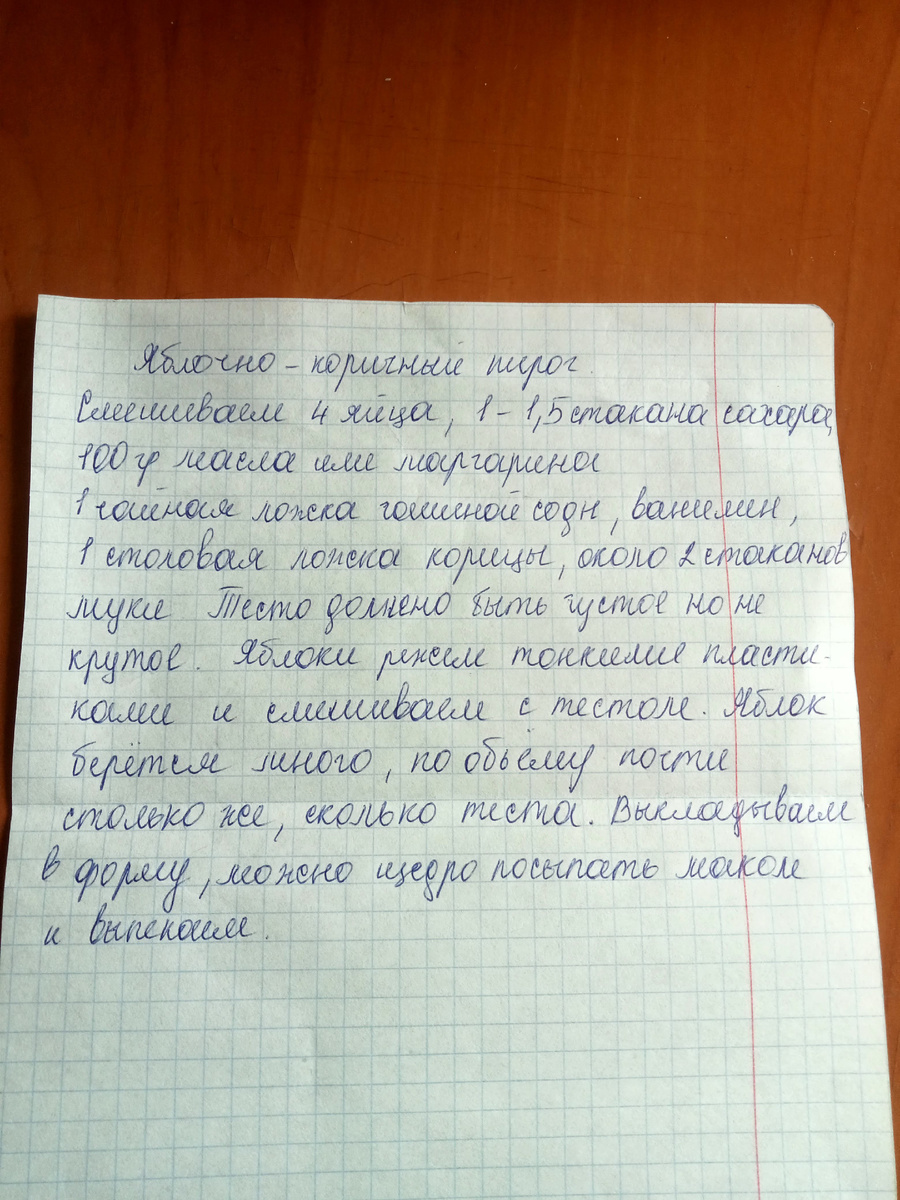 Яблочно - коричный пирог.
Смешиваем 4 яйца, 1 - 1,5 стакана сахара,
100 гр масла или маргарина
1 чайная ложка гашеной соды, ванилин,
1 столовая ложка корицы, около 2 стаканов
муки Тесто должно быть густое но не
крутое. Яблоки режем тонкими пласти-
ками и смешиваем с тестом. Яблок
берётем много, по объёму почти
столько же, сколько теста. Выкладываем
в форму, можно щедро посыпать маком
и выпекаем.